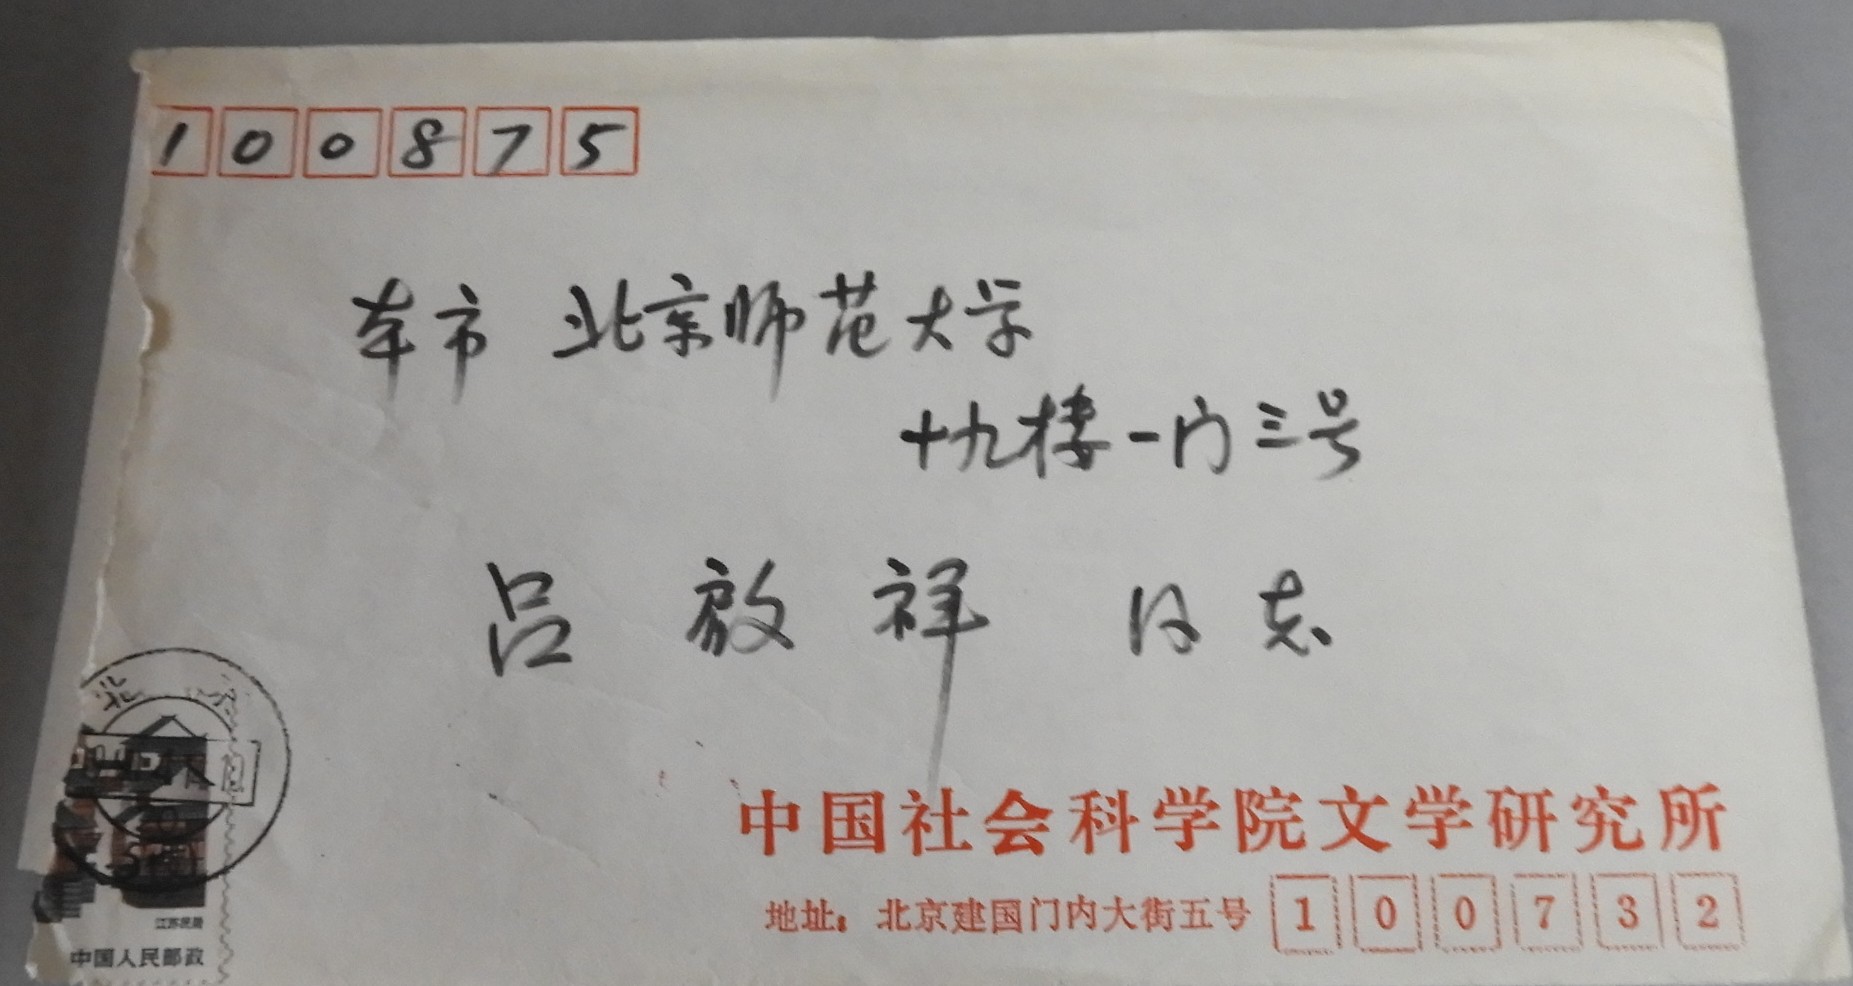 100875
本市 北京师范大学
十九楼一门三号
吕啟祥 同志
北 京
江苏民居
中国人民邮政
中国社会科学院文学研究所
地址：北京建国门内大街五号 100732